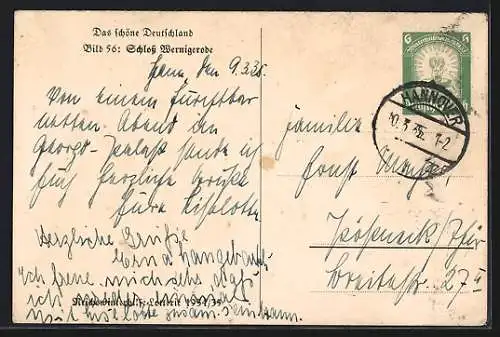 Das schöne Deutschland
Bild 56: Schloß Wernigerode
Hann. den 9.3.35.
Von einem furchtbar
netten Abend im
Georgs-Palast sende ich
Euch herzliche Grüße
Eure Liselotte
Herzliche Grüße
Erna
Ich freue mich sehr daß
ich
mit Liselotte zusam. sein kann.
Reichswinterhilfe-Lotterie 1934/35
6 6
HANNOVER
10.3.35. 1-2
Familie
Ernst
Pößneck/Thür
Breitestr. 27 II